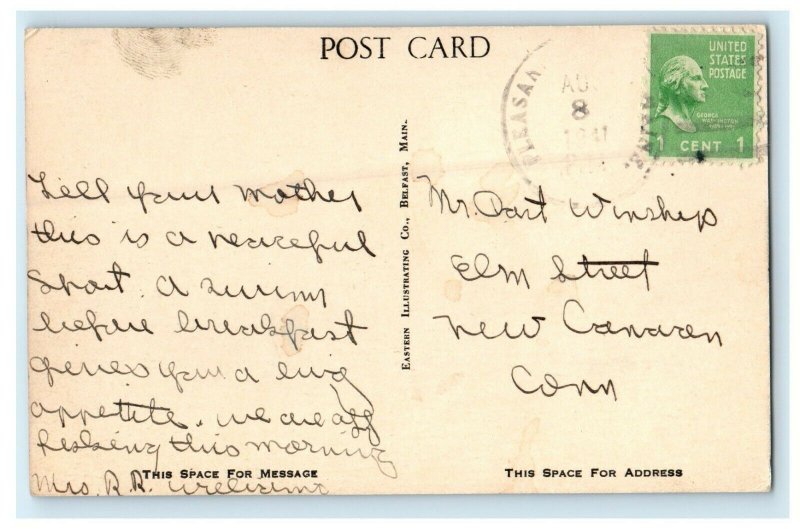 POST CARD
PLEASAN
AUG
8
1941
MAINE
UNITED
STATES
POSTAGE
GEORGE
WASHINGTON
1 CENT 1
EASTERN ILLUSTRATING CO., BELFAST, MAIN.
Tell your mother
this is a peaceful
spot. A swim
before breakfast
gives you a big
appetite. we are off
fishing this morning
Mrs. R.R. Williams
THIS SPACE FOR MESSAGE
Mr. Dart Winship
Elm Street
New Canaan
Conn
THIS SPACE FOR ADDRESS